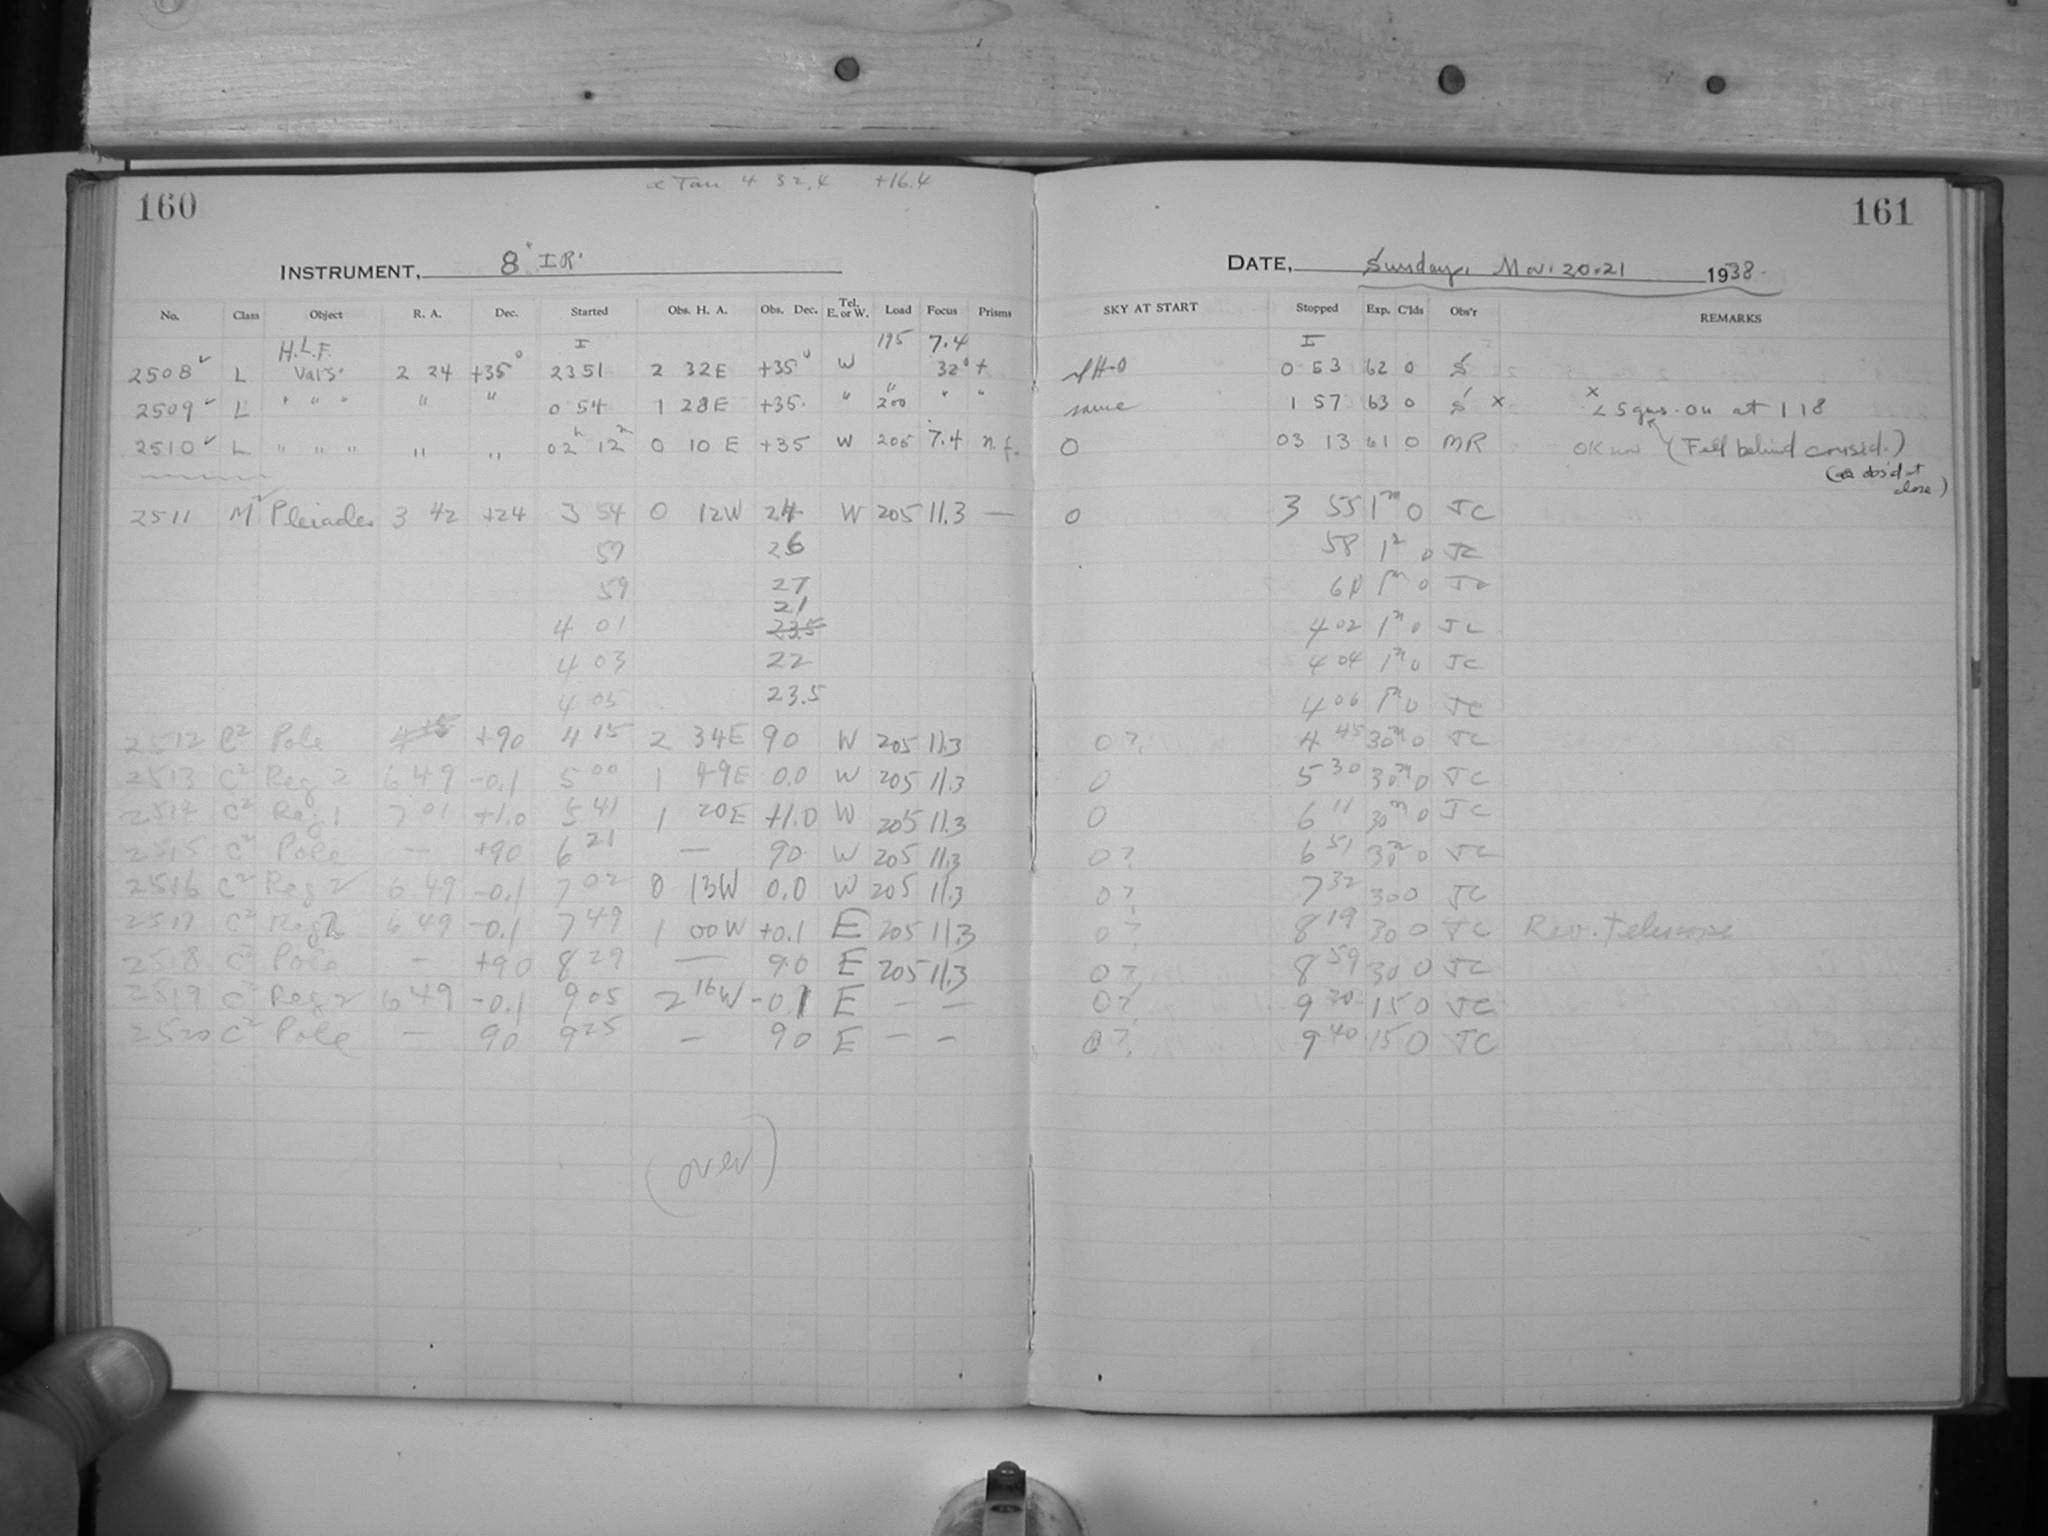 α Tau 4 32.4 +16.4
160
INSTRUMENT, 8" IR.
No. Class Object R. A. Dec. Started Obs. H. A. Obs. Dec. Tel. E. or W. Load Focus Prisms
H.L.F. I 195 7.4
2508 ✓ L Vars. 2 24 +35° 2351 2 32E +35° W 32° +
2509 ✓ L " " " " " 0 54 1 28E +35. " " 200 " "
2510 ✓ L " " " " " 02h 12m 0 10 E +35 W 205 7.4 n.f.
2511 M² Pleiades 3 42 +24 3 54 0 12W 24 W 205 11.3 —
57 26
59 27
21
4 01 23.5
4 03 22
4 05 23.5
2512 C² Pole +90 4 15 2 34E 90 W 205 11.3
2513 C² Reg 2 6 49 -0.1 5 00 1 49E 0.0 W 205 11.3
2514 C² Reg 1 7 01 +1.0 5 41 1 20E +1.0 W 205 11.3
2515 C² Pole — +90 6 21 — 90 W 205 11.3
2516 C² Reg 2 6 49 -0.1 7 02 0 13W 0.0 W 205 11.3
2517 C² Reg 2 6 49 -0.1 7 49 1 00W +0.1 E 205 11.3
2518 C² Pole — +90 8 29 — 90 E 205 11.3
2519 C² Reg 2 6 49 -0.1 9 05 2 16W -0.1 E — —
2520 C² Pole — 90 9 25 — 90 E — —
(over)
161
DATE, Sunday, Mar. 20.21 1938.
SKY AT START Stopped Exp. C'lds Obs'r REMARKS
I
0 53 62 0 S
same 1 57 63 0 S × × on at 1 18
0 03 13 61 0 MR OK (Fell behind consid.)
(as obs'd at
close)
0 3 55 1m 0 JC
58 1m 0 JC
60 1m 0 JC
4 02 1m 0 JC
4 04 1m 0 JC
4 06 1m 0 JC
0? 4 45 30m 0 JC
0 5 30 30m 0 JC
0 6 11 30m 0 JC
0? 6 51 30m 0 JC
0? 7 32 30 0 JC
0? 8 19 30 0 JC Rev. Telescope
0? 8 59 30 0 JC
0? 9 20 15 0 JC
0? 9 40 15 0 JC